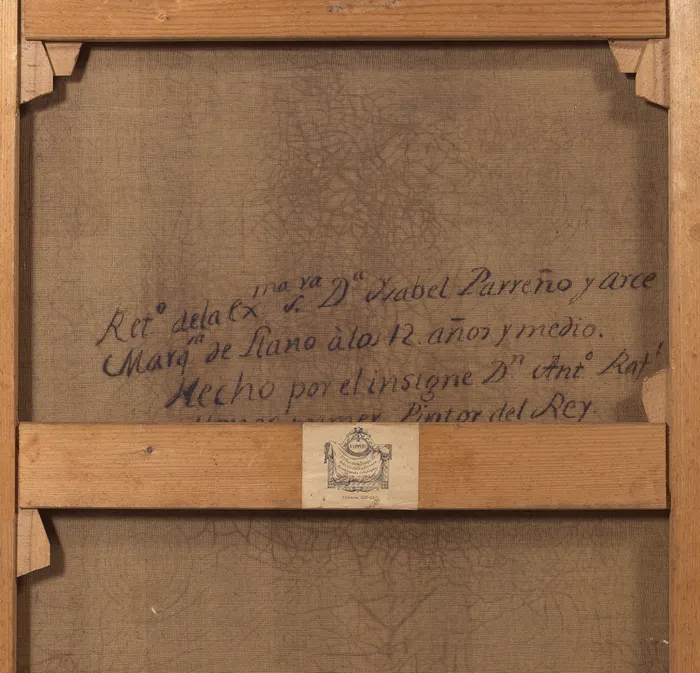 Ret.º de la Exma Sra Dª Ysabel Parreño y arce
Marqra de Llano à los 12 años y medio.
Hecho por el insigne Dn Antº Rafl
primer Pintor del Rey.